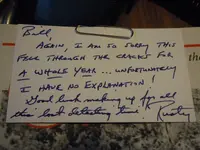 Bill,
AGAIN, I AM SO SORRY THIS
FELL THROUGH THE CRACKS FOR
A WHOLE YEAR... UNFORTUNATELY
I HAVE NO EXPLANATION.
Good luck making up for all
this lost detecting time! Rusty